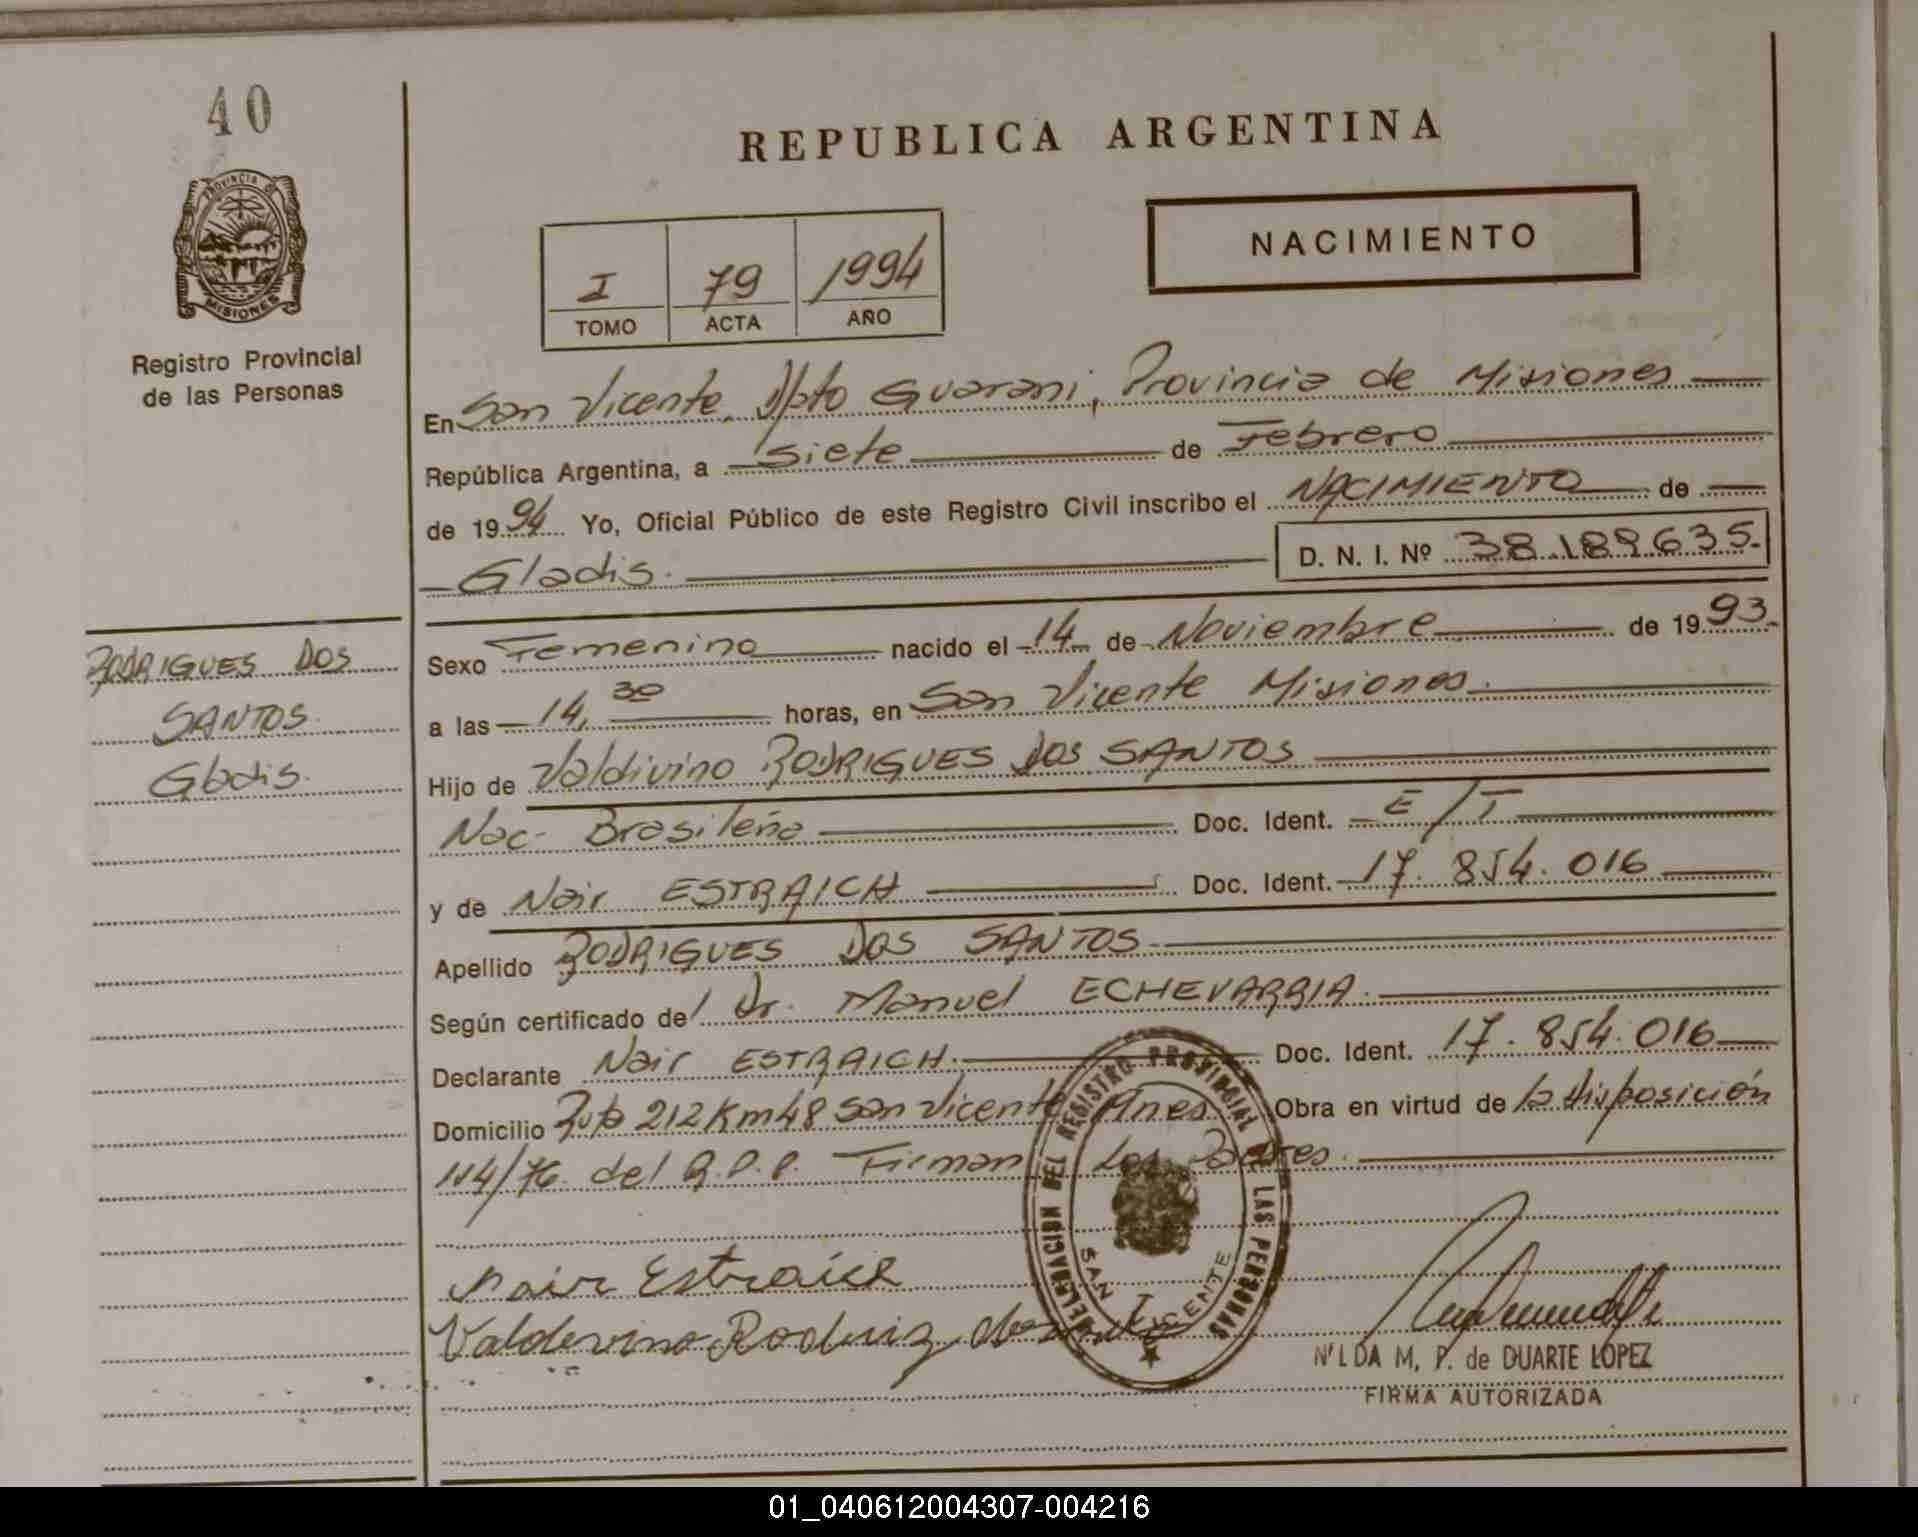 40
PROVINCIA DE
MISIONES
Registro Provincial
de las Personas
RODRIGUES DOS
SANTOS.
Gladis.
REPUBLICA ARGENTINA
NACIMIENTO
I 79 1994
TOMO ACTA AÑO
En San Vicente, Dpto Guarani, Provincia de Misiones
República Argentina, a Siete de Febrero
de 1994 Yo, Oficial Público de este Registro Civil inscribo el NACIMIENTO de
Gladis. D. N. I. Nº 38.189.635.
Sexo Femenino nacido el 14 de Noviembre de 1993.
a las 14,30 horas, en San Vicente Misiones.
Hijo de Valdivino RODRIGUES DOS SANTOS
Nac- Brasileña Doc. Ident. E/T
y de Nair ESTRAICH Doc. Ident. 17.854.016
Apellido RODRIGUES DOS SANTOS
Según certificado del Dr. Manuel ECHEVARRIA.
Declarante Nair ESTRAICH. Doc. Ident. 17.854.016
Domicilio Ruta 212 Km 48 San Vicente Mnes. Obra en virtud de la disposición
114/76. del R.P.P. Firman Los Padres.
Nair Estraich
Valdevino Rodriz dos
DELEGACION DEL REGISTRO PROVINCIAL DE LAS PERSONAS
SAN VICENTE
NILDA M. P. de DUARTE LOPEZ
FIRMA AUTORIZADA
01_040612004307-004216